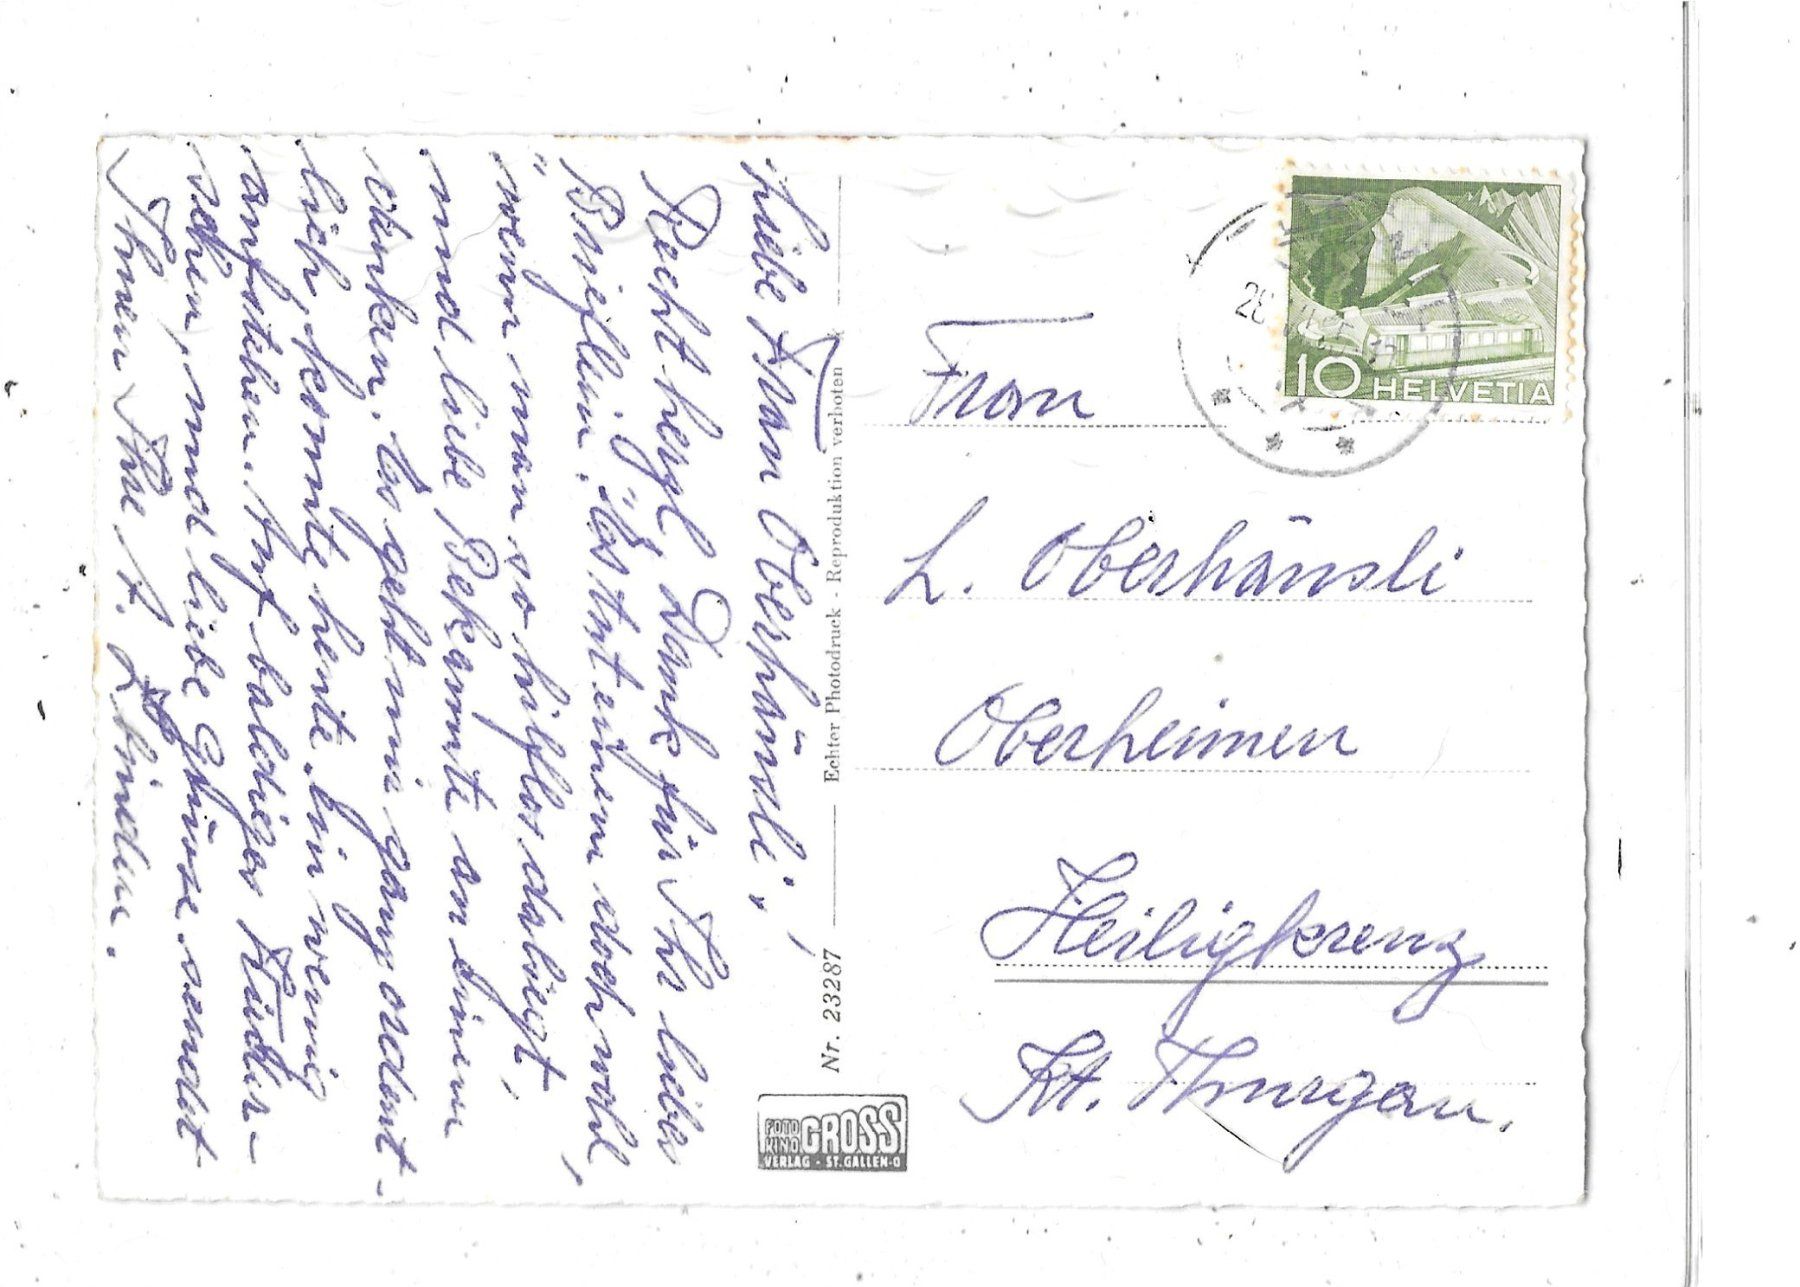 Liebe Frau Oberhänsli,
Recht herzl. Dank für Ihr liebes
Brieflein. Es tut einem doch wohl,
wenn man so hilflos daliegt,
und liebe Bekannte an einen
denken. Es geht mir ganz ordent-
lich, konnte heute ein wenig
aufstehen. Auf baldiges Wieder-
sehen, und liebe Grüsse sendet
Ihnen Ihre
Nr. 23287
Echter Photodruck - Reproduktion verboten
FOTO KINO GROSS
VERLAG - ST. GALLEN-O
10 HELVETIA
Frau
L. Oberhänsli
Oberheimen
Heiligkreuz
Kt. Thurgau.